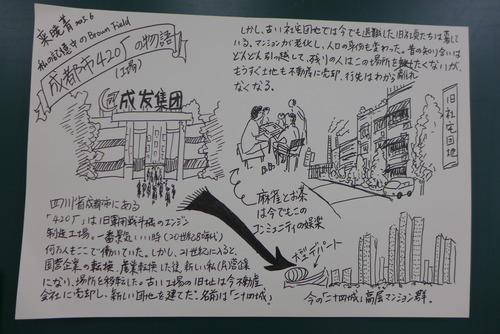 来曉菁 no.6
私の記憶中のBrown Field
成都市420厂の物語
(工場)
成发集团
しかし、古い社宅団地では今でも退職した旧社員たちは暮して
いる。マンションが老化し、人口の身份も変わった。昔の知り合いは
どんどん引っ越して、残りの人はこの場所を離れたくないが、
もうすぐ土地も不動産に売却、行先はわから
なくなる。
旧社宅団地
麻雀とお茶
は今でもこの
コミュニティの娯楽
四川省成都市にある
「420厂」は旧軍用戦斗機のエンジン
制造工場。一番景気いい時(20世紀80年代)
何万人もここで働いていた。しかし、21世紀に入ると、
国営企業の転換、産業転換した後、新しい私(民)営企業
になり、場所を移転した。古い工場の旧址は今不動産
会社に売却し、新しい団地を建てだ。名前は「二十四城」
大型デパート
今の「二十四城」高層マンション群。